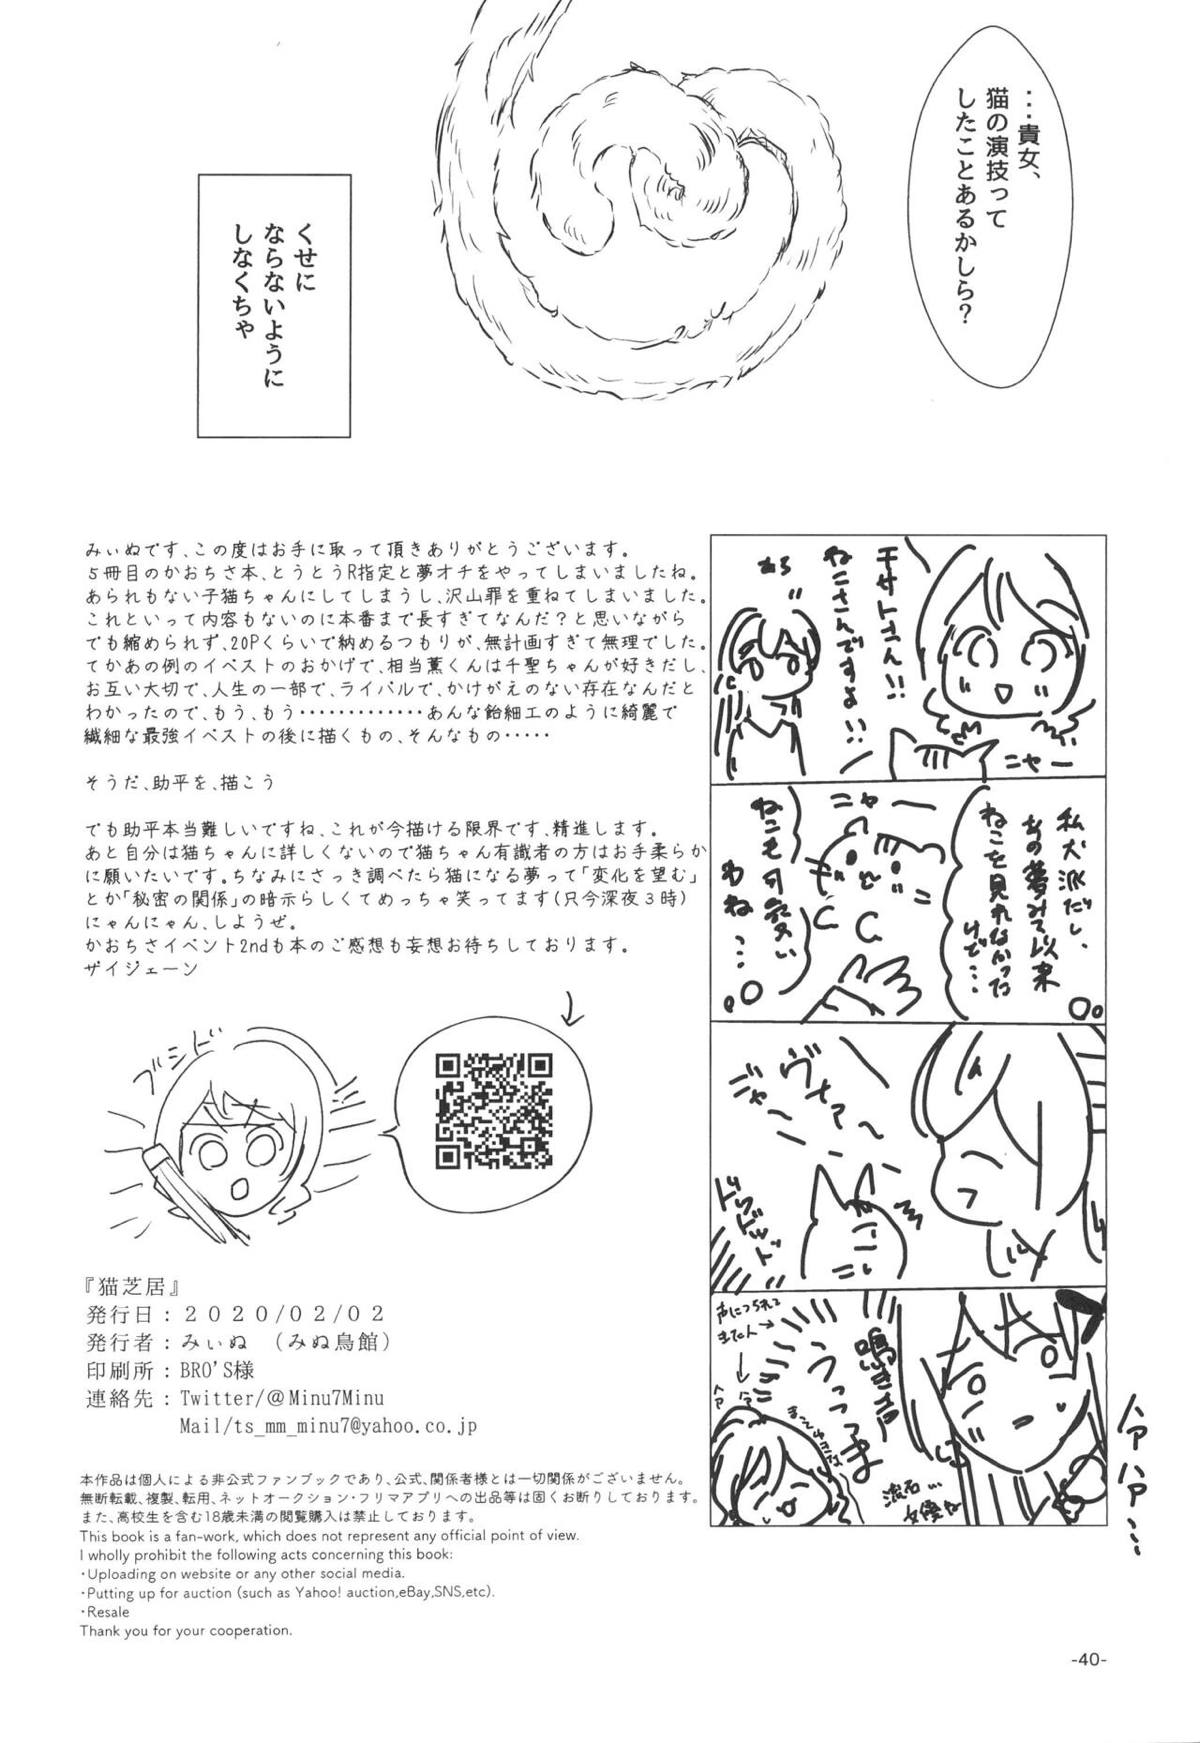 ・・・貴女、
猫の演技って
したことあるかしら?
くせに
ならないように
しなくちゃ
みぃぬです、この度はお手に取って頂きありがとうございます。
5冊目のかおちさ本、とうとうR指定と夢オチをやってしまいましたね。
あられもない子猫ちゃんにしてしまうし、沢山罪を重ねてしまいました。
これといって内容もないのに本番まで長すぎてなんだ?と思いながら
でも縮められず、20Pくらいで納めるつもりが、無計画すぎて無理でした。
てかあの例のイベストのおかげで、相当薫くんは千聖ちゃんが好きだし、
お互い大切で、人生の一部で、ライバルで、かけがえのない存在なんだと
わかったので、もう、もう・・・・・・・・・・・・・あんな飴細工のように綺麗で
繊細な最強イベストの後に描くもの、そんなもの・・・・・
そうだ、助平を、描こう
でも助平本当難しいですね、これが今描ける限界です、精進します。
あと自分は猫ちゃんに詳しくないので猫ちゃん有識者の方はお手柔らか
に願いたいです。ちなみにさっき調べたら猫になる夢って「変化を望む」
とか「秘密の関係」の暗示らしくてめっちゃ笑ってます(只今深夜3時)
にゃんにゃん、しようぜ。
かおちさイベント2ndも本のご感想も妄想お待ちしております。
ザイジェーン
千サトさん!!
ねこさんですよ!!
あら
ニャー
私犬派だし、
あの夢みて以来
ねこを見れなかった
けど…
ニャー
ねこも可愛い
わね…
ヴニャアー
ジャー
ねこ
ドッドッドッド
声につられて
きた人→
鳴き声
うっっっま
流石…
女優ね
ハァハァ…
ブシドー
『猫芝居』
発行日:2020/02/02
発行者:みぃぬ (みぬ鳥館)
印刷所:BRO'S様
連絡先:Twitter/@Minu7Minu
Mail/ts_mm_minu7@yahoo.co.jp
本作品は個人による非公式ファンブックであり、公式、関係者様とは一切関係がございません。
無断転載、複製、転用、ネットオークション・フリマアプリへの出品等は固くお断りしております。
また、高校生を含む18歳未満の閲覧購入は禁止しております。
This book is a fan-work, which does not represent any official point of view.
I wholly prohibit the following acts concerning this book:
・Uploading on website or any other social media.
・Putting up for auction (such as Yahoo! auction,eBay,SNS,etc).
・Resale
Thank you for your cooperation.
-40-